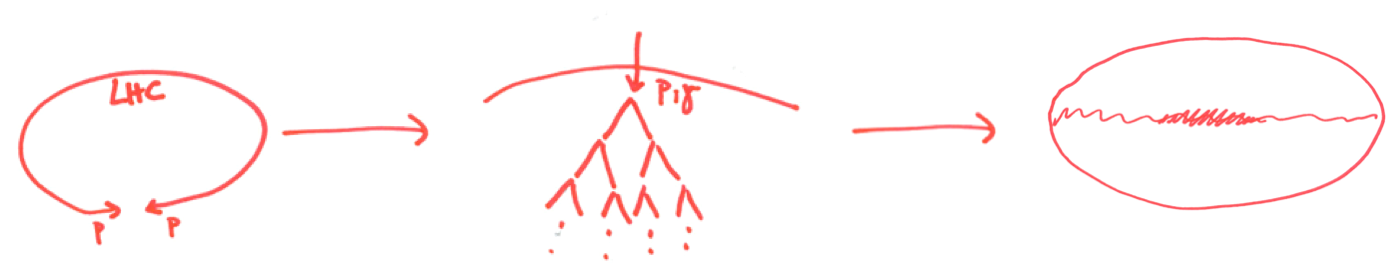 LHC
P
P
P,γ